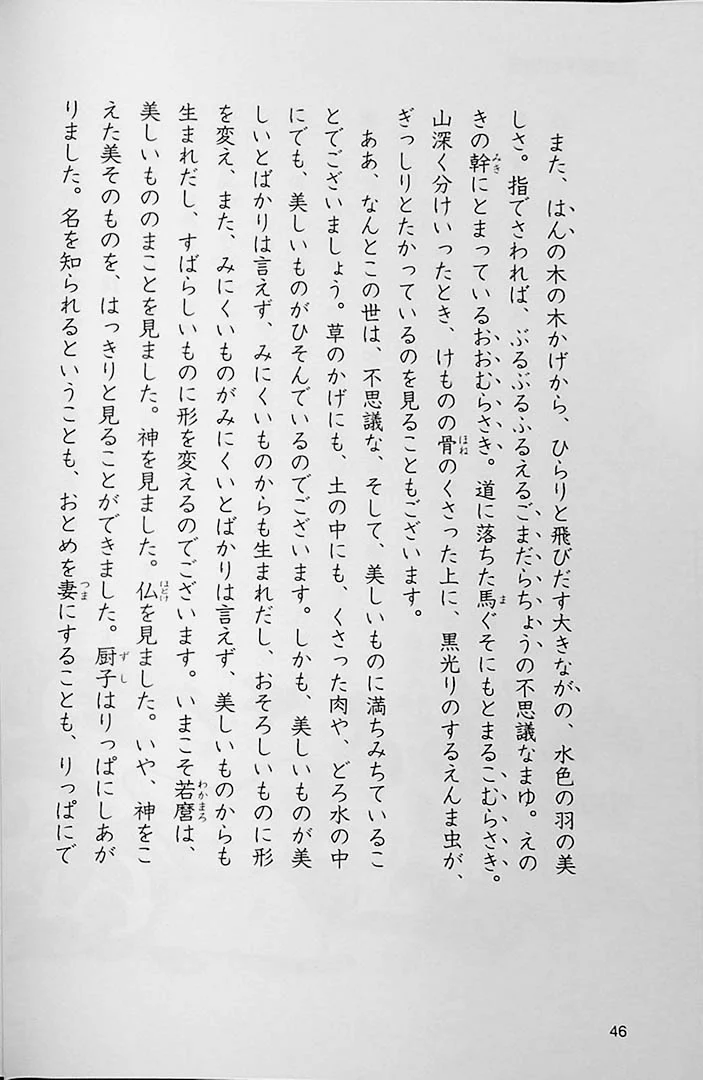 また、はんの木の木かげから、ひらりと飛びだす大きながの、水色の羽の美
しさ。指でさわれば、ぶるぶるふるえるごまだらちょうの不思議なまゆ。えの
きの幹にとまっているおおむらさき。道に落ちた馬ぐそにもとまるこむらさき。
山深く分けいったとき、けものの骨のくさった上に、黒光りのするえんま虫が、
ぎっしりとたかっているのを見ることもございます。
ああ、なんとこの世は、不思議な、そして、美しいものに満ちみちているこ
とでございましょう。草のかげにも、土の中にも、くさった肉や、どろ水の中
にでも、美しいものがひそんでいるのでございます。しかも、美しいものが美
しいとばかりは言えず、みにくいものからも生まれだし、おそろしいものに形
を変え、また、みにくいものがみにくいとばかりは言えず、美しいものからも
生まれだし、すばらしいものに形を変えるのでございます。いまこそ若麿は、
美しいもののまことを見ました。神を見ました。仏を見ました。いや、神をこ
えた美そのものを、はっきりと見ることができました。厨子はりっぱにしあが
りました。名を知られるということも、おとめを妻にすることも、りっぱにで
46